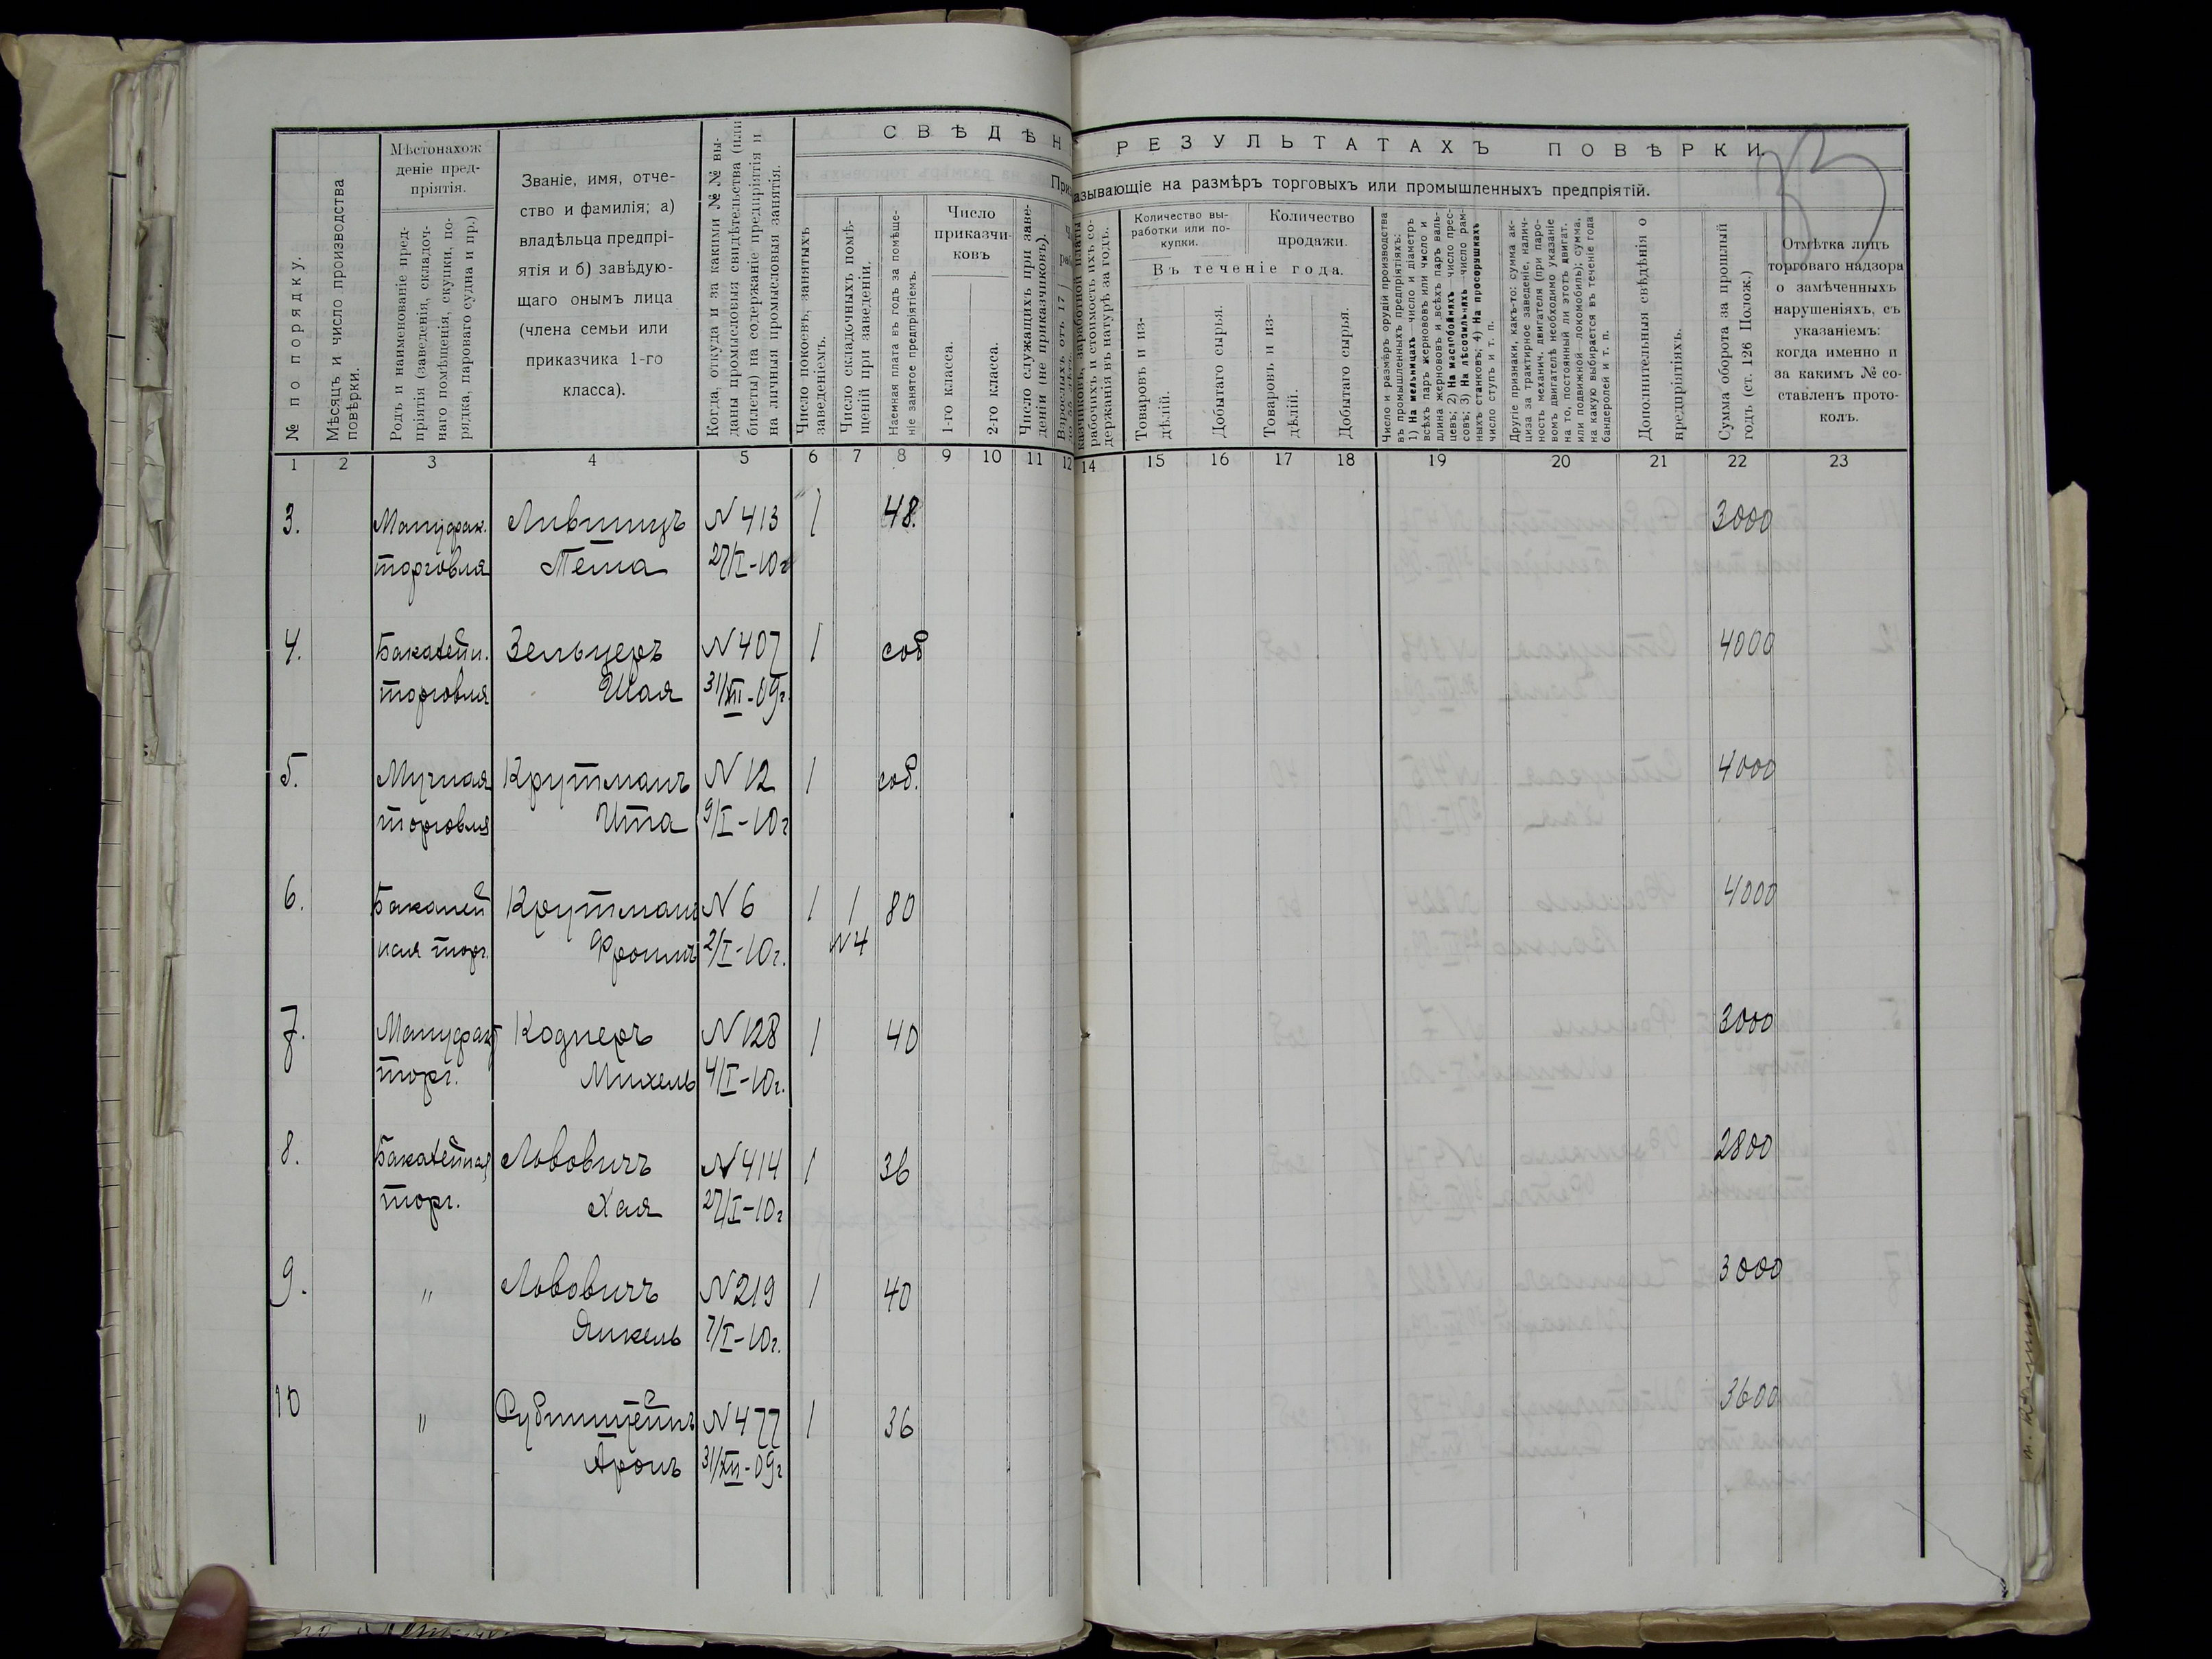 СВѢДѢН
РЕЗУЛЬТАТАХЪ ПОВѢРКИ.
азывающіе на размѣръ торговыхъ или промышленныхъ предпріятій.
№ по порядку.
Мѣсяцъ и число производства
повѣрки.
Мѣстонахож
деніе пред-
пріятія.
Родъ и наименованіе пред-
пріятія (заведенія, складоч-
наго помѣщенія, скупки, по-
рядка, парового судна и пр.)
Званіе, имя, отче-
ство и фамилія; а)
владѣльца предпрі-
ятія и б) завѣдую-
щаго онымъ лица
(члена семьи или
приказчика 1-го
класса).
Когда, откуда и за какими №№ вы-
даны промысловыя свидѣтельства (или
билеты) на содержаніе предпріятія и
на личныя промысловыя занятія.
Число покоевъ, занятыхъ
заведеніемъ.
Число складочныхъ помѣ-
щеній при заведеніи.
Наемная плата въ годъ за помѣще-
ніе занятое предпріятіемъ.
Число
приказчи-
ковъ
1-го класса.
2-го класса.
Число служащихъ при заве-
деніи (не приказчиковъ).
Взрослыхъ отъ 17
рабочихъ и стоимость ихъ со-
держанія въ натурѣ за годъ.
Количество вы-
работки или по-
купки.
Количество
продажи.
Въ теченіе года.
Товаровъ и из-
дѣлій.
Добытаго сырья.
Товаровъ и из-
дѣлій.
Добытаго сырья.
Число и размѣръ орудій производства
въ промышленныхъ предпріятіяхъ:
1) На мельницахъ число и діаметръ
всѣхъ паръ жернововъ или число и
длина жернововъ и всѣхъ паръ валь-
цевъ; 2) На маслобойняхъ число прес-
совъ; 3) На лѣсопильняхъ число рам-
ныхъ станковъ; 4) На просорушкахъ
число ступъ и т. п.
Другіе признаки, какъ-то: сумма ак-
циза за трактирное заведеніе, налич-
ность механич. двигателя (при паро-
вомъ двигателѣ необходимо указаніе
на то, постоянный ли этотъ двигат.
или подвижной—локомобиль); сумма,
на какую выбирается въ теченіе года
бандеролей и т. п.
Дополнительныя свѣдѣнія о
предпріятіяхъ.
Сумма оборота за прошлый
годъ (ст. 126 Полож.)
Отмѣтка лицъ
торговаго надзора
о замѣченныхъ
нарушеніяхъ, съ
указаніемъ:
когда именно и
за какимъ № со-
ставленъ прото-
колъ.
1 2 3 4 5 6 7 8 9 10 11 12 14 15 16 17 18 19 20 21 22 23
3. Мануфак. Лившицъ N 413 1 48. 3000
торговля Пеша 27/I-10г
4. Бакалейн. Зельцеръ N 407 1 соб 4000
торговля Шая 31/XII-09г.
5. Мучная Крутманъ N 12 1 соб. 4000
торговля Ита 9/I-10г
6. Бакалей Крутманъ N 6 1 1 80 4000
ная торг. Фроимъ 2/I-10г. N 4
7. Мануфакт Коднеръ N 128 1 40 3000
торг. Михель 4/I-10г.
8. Бакалейная Львовичъ N 414 1 36 2800
торг. Хая 27/I-10г
9. " Львовичъ N 219 1 40 3000
Янкель 7/I-10г.
10 " Рубинштейнъ N 477 1 36 3600
Аронъ 31/XII-09г